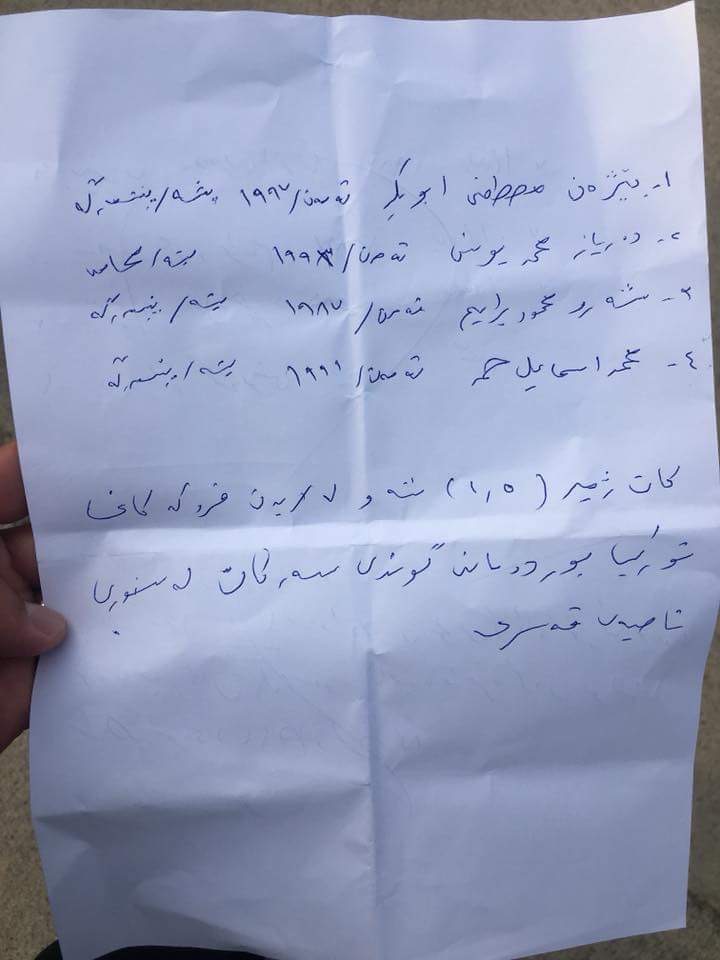 ١- بێژەن مصطفى ابوبكر تەمەن/ ١٩٩٢ پیشە/ پێشمەرگە
٢- دەریاز محمد یوسف تەمەن/ ١٩٩٣ پیشە/ كاسب
٣- شەرو محمود برایم تەمەن/ ١٩٨٧ پیشە/ پێشمەرگە
٤- محمد اسماعیل حمە تەمەن/ ١٩٩١ پیشە/ پێشمەرگە
كات ژمێر (١،٥) شەو لە لایەن فرۆكەكانی
توركیا بوردومانی گوندی سەركان لە سنوری
ناحیەی قەسرێ